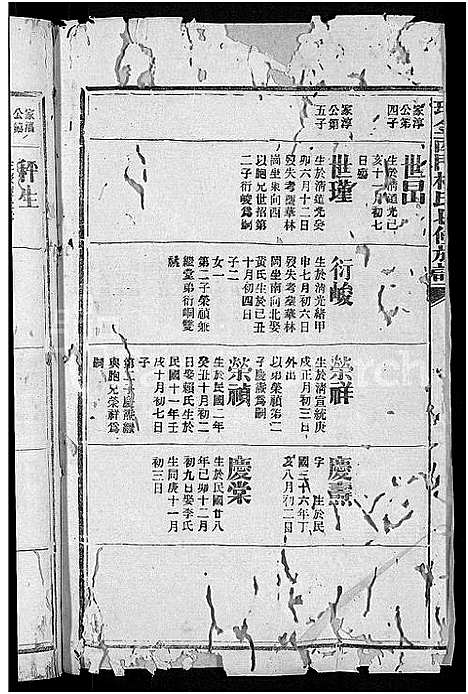 家淳
公第
四子
世昌
生於清道光己
亥十一月初七
日歿
家淳
公第
五子
世瑾
生於清道光癸
卯六月十二日
歿失考葬華林
崗坐東向西
以胞兄世招第
二子衍峻爲嗣
衍峻
生於清光緒甲
申七月初六日
歿失考葬華林
岡坐南向北娶
黃氏生於己丑
十月初四日
子二
女一
第二子榮禎兼
繼堂弟衍嗣雙
祧
榮祥
生於清宣統庚
戌正月初三日
外出
以弟榮禎第二
子慶熹爲嗣
榮禎
生於民國二年
癸丑十月初二
日娶賴氏生於
民國十一年壬
戌十月初七日
子
第二子慶熹繼
與胞兄榮祥爲
嗣
慶熹
字 生於民
國三十六年丁
亥八月初二日
慶棠
生於民國廿八
年己卯十二月
初九日娶李氏
生同庚十一月
初三日
家濬
公嗣
秤生